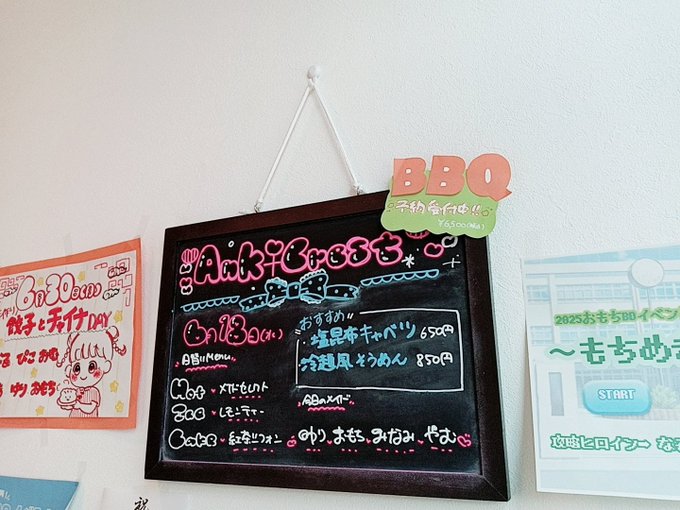 BBQ
予約受付中!!
¥6,500(税込)
Ank♥Cross
6月18日(水)
日替りMenu
Hot ♥ メイドセレクト
Tea ♥ レモンティー
Cake ♥ 紅茶シフォン
おすすめ
塩昆布キャベツ 650円
冷麺風そうめん 850円
今日のメイド
ゆり おもち みなみ やむ
6月30日(月)
餃子とチャイナDAY
ぴこ おむ
ゆり おもち
2025おもちBDイベン
～もちめき
START
攻略ヒロイン→ な
祝